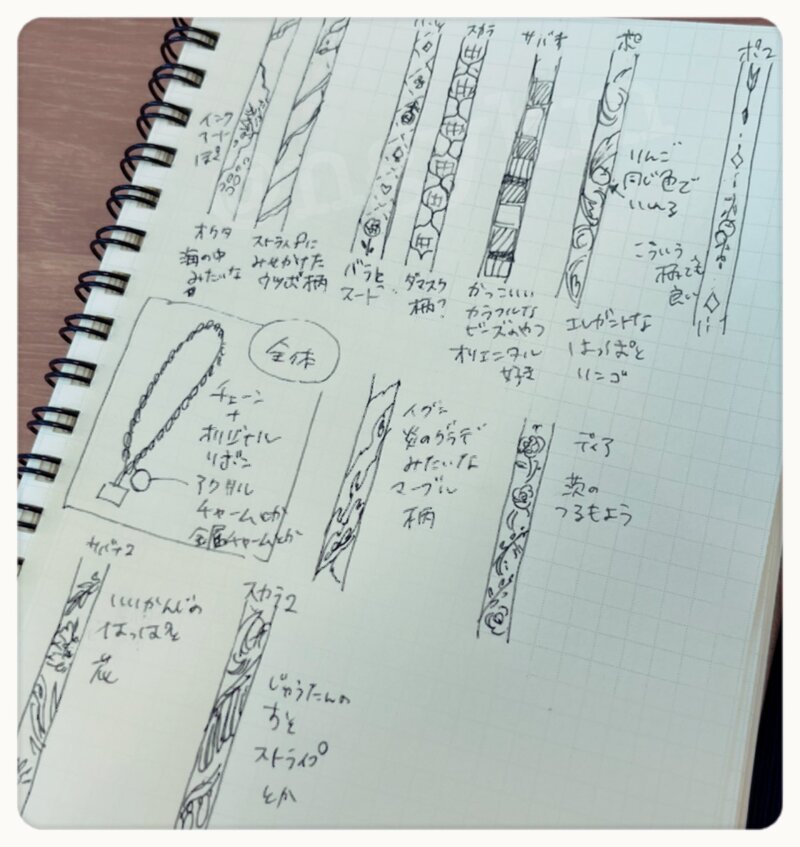 インク
オクタ
海の中
みたいな
ストライプに
みせかけた
ウツボ柄
バラと
スート
スカラ
ダマスク
柄?
サバナ
かっこいい
カラフルな
ビーズのやつ
オリエンタル
好き
ポ
りんご
同じ色で
エレガントな
はっぱと
リンゴ
ポ2
こういう
柄でも
良い
全体
チェーン
+
オリジナル
リボン
アクリル
チャームとか
金属チャームとか
イグニ
炎のグラデ
みたいな
マーブル
柄
ディア
茨の
つるもよう
サバナ2
いいかんじの
はっぱと
花
スカラ2
じゅうたんの
ストライプ
とか